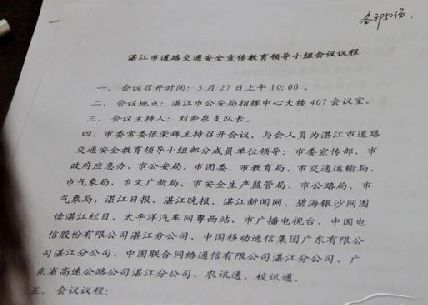 湛江市道路交通安全宣传教育领导小组会议议程
一、会议召开时间：5月27日上午10:00。
二、会议地点：湛江市公安局指挥中心大楼407会议室。
三、会议主持人：刘 支队长。
四、市委常委张荣辉主持召开会议，与会人员为湛江市道路
交通安全教育领导小组部分成员单位领导：市委宣传部、市
政府应急办、市公安局、市团委、市教育局、市交通运输局、
市气象局、市文广新局、市安全生产监管局、市公路局、市
气象局、湛江日报、湛江晚报、湛江新闻网、碧海银沙网国
信湛江栏目、太平洋汽车网粤西站。市广播电视台、中国电
信股份有限公司湛江分公司、中国移动通信集团广东有限公
司湛江分公司、中国联合网络通信有限公司湛江分公司、广
东省高速公路公司湛江分公司、农讯通、校讯通。
五、会议议程：